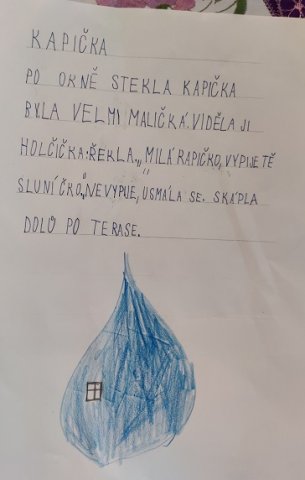 KAPIČKA
PO OKNĚ STEKLA KAPIČKA
BYLA VELMI MALIČKÁ. VIDĚLA JI
HOLČIČKA: ŘEKLA, „MILÁ KAPIČKO, VYPIJE TĚ
SLUNÍČKO„ „NEVYPIJE, USMÁLA SE. SKÁPLA
DOLŮ PO TERASE.